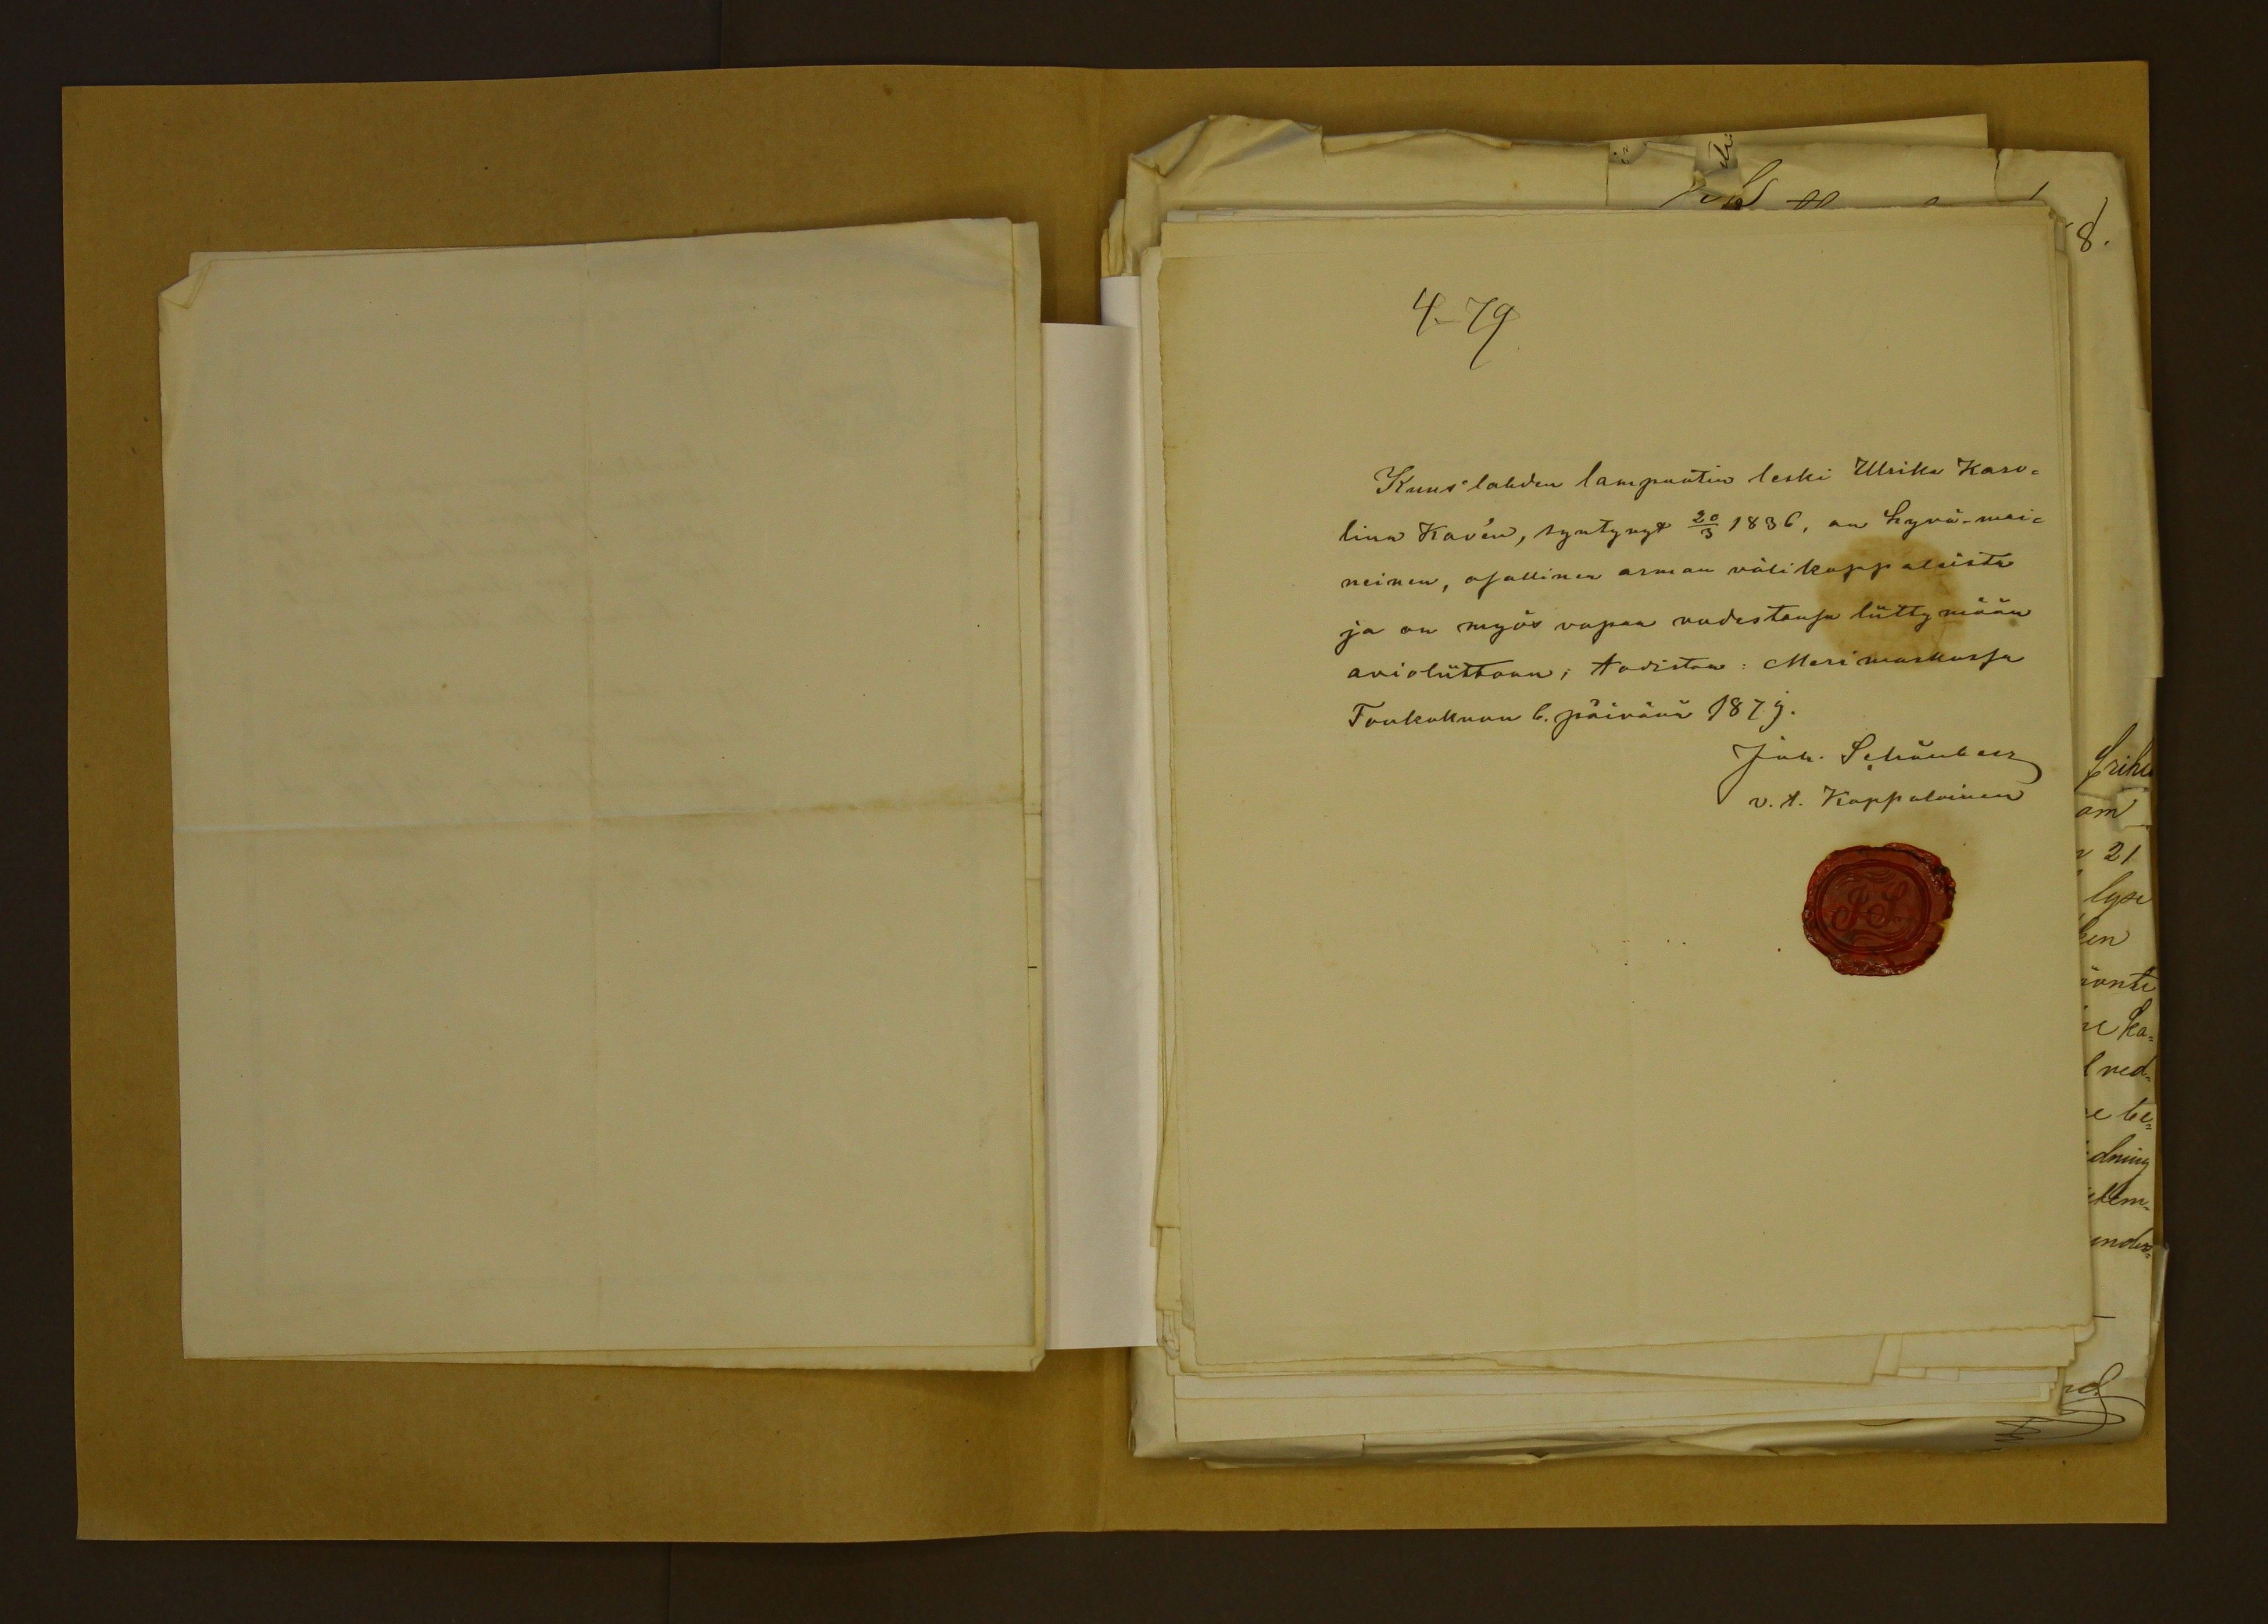 4-79
Kuuslahden lampuotin leski Ulrika Karo=
lina Kavén, syntynyt 20/3 1836, on hyvä-mai=
neinen, osallinen armon välikappaleista
ja on myös vapaa uudestansa liittymään
avioliittoon; todistaa: Merimaskussa
Toukokuun 6. päivänä 1879.
Joh. Schönberg
v. t. Kappalainen
J.S.
8.
am
21
lyse
ken
ka=
ned=
be=
dning